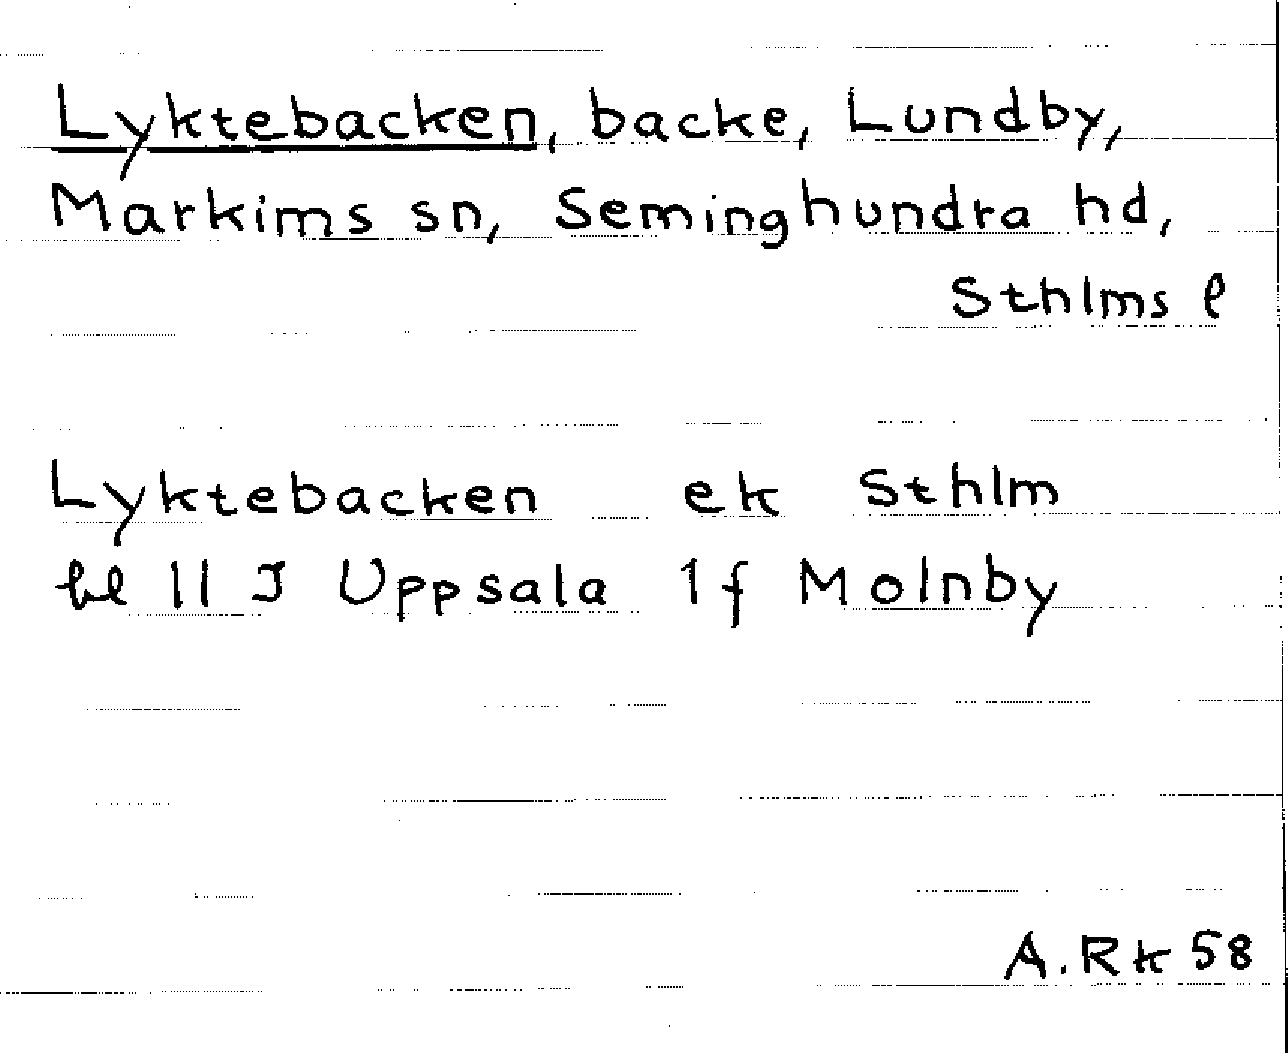 Lyktebacken, backe, Lundby,
Markims sn, Seminghundra hd,
Sthlms l
Lyktebacken ek Sthlm
bl 11 J Uppsala 1f Molnby
A.Rk 58